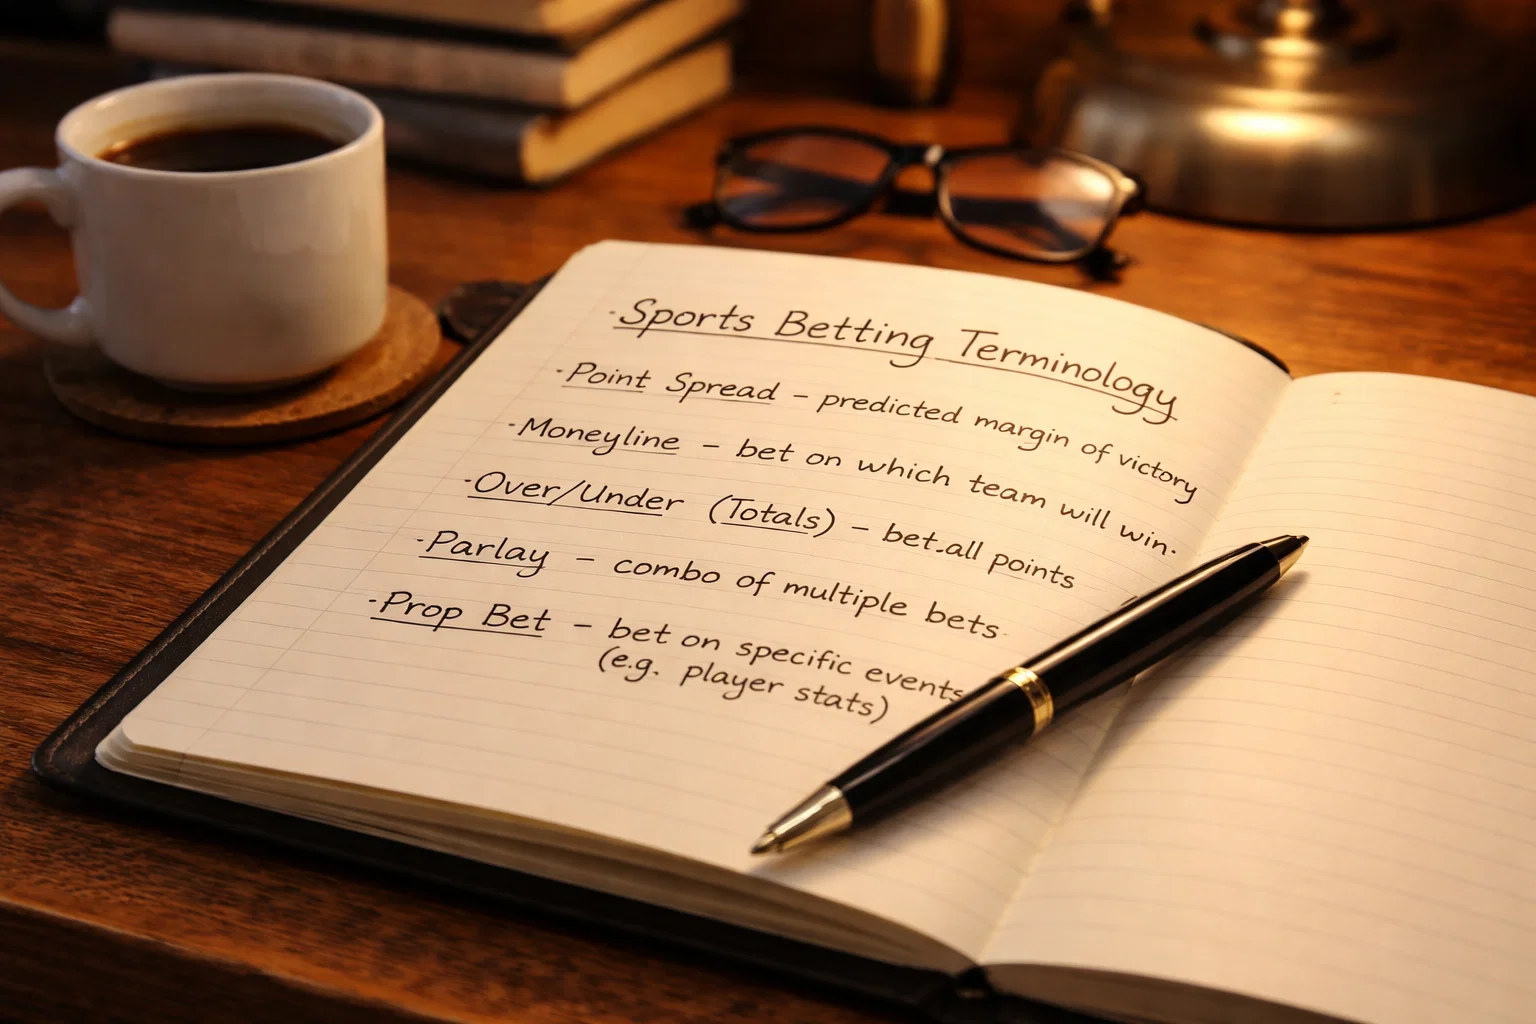 · Sports Betting Terminology
· Point Spread – predicted margin of victory
· Moneyline – bet on which team will win.
· Over/Under (Totals) – bet.all points
· Parlay – combo of multiple bets
· Prop Bet – bet on specific events
(e.g. player stats)